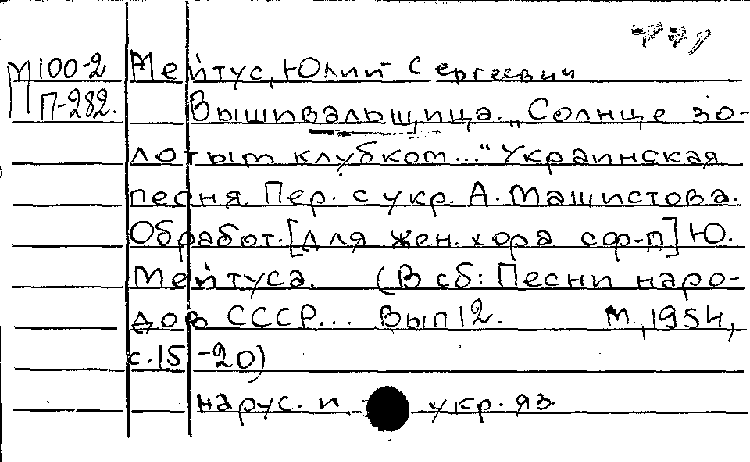 М100-2 Мейтус, Юлий Сергеевич
П-282. Вышивальщица. „Солнце зо-
лотым клубком..." Украинская
песня. Пер. с укр. А. Машистова.
Обработ. [для жен. хора с ф-п] Ю.
Мейтуса. (В сб: Песни наро-
дов СССР... Вып 12. М, 1954,
с. 15-20)
На рус. и укр. яз